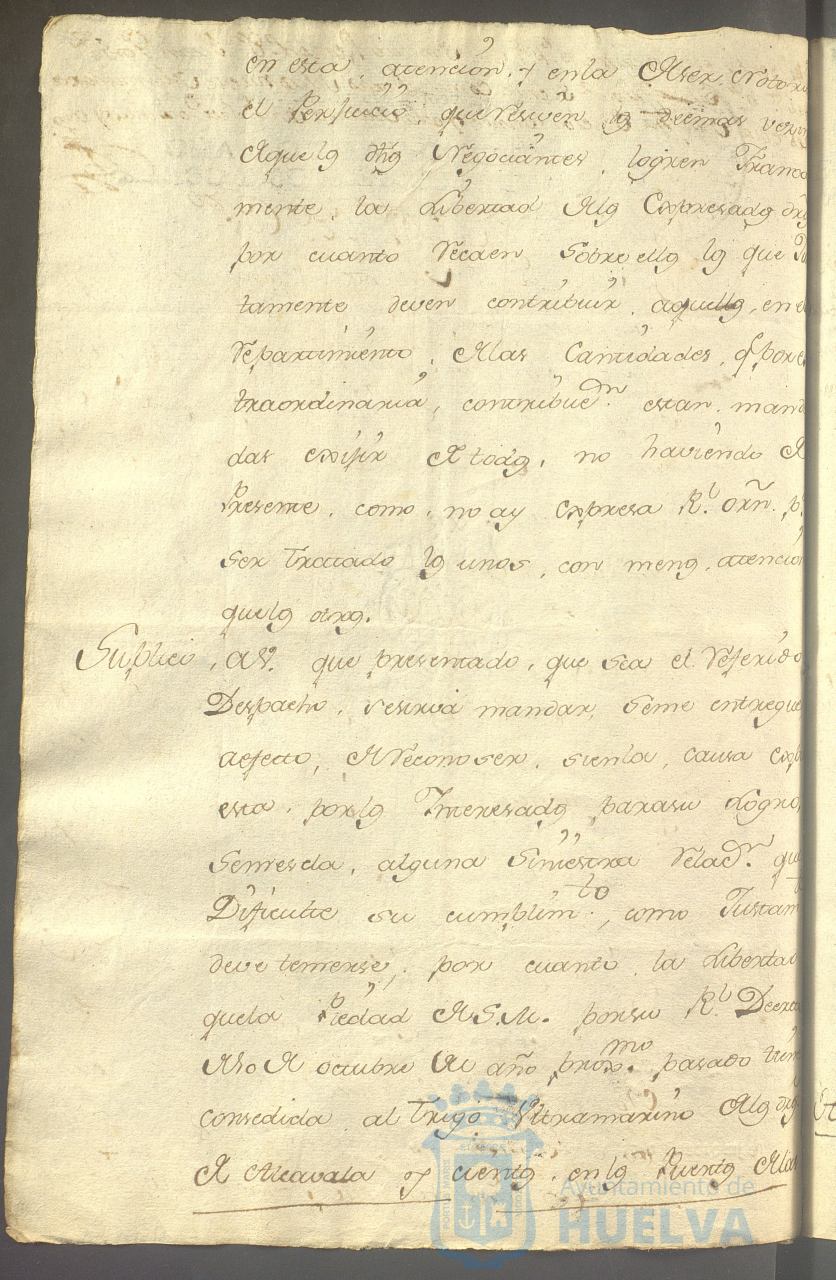 en esta, atencion, y enla de ser Notori
el Perjuicio, que reciven los demas vezin
de aquelos dhos Negociantes, logren Franca
mente, la Libertad de los Expresados dros
por cuanto recaen sobre ellos lo que Ju
tamente deven contribuir, aquellos, en el
repartimiento, de las Cantidades, q por ex
traordinaria, contribucon estan, manda
das exijir de todos, no haviendo de
Presente, como, no ay expresa Rl. orn. pa
ser Trattado los unos, con menos, atencion
quelos otros.
Suplico, a V. que presentado, que sea el referido
Despacho, se sirva mandar, seme entregue
aefecto, de reconoser, sienla, causa exp
esta, por los Interesados parasu Logro,
semescla, alguna siniestra relaon. que
Dificulte su cumplimto, como Justam
deve temerse, por cuanto, la Libertad
quela Piedad de S.M. porsu Rl. Decreto
de de octubre de año proxmo. pasado tiene
consedida, al Trigo Ultramarino de los dros
de Alcavala y cientos, en los Puertos de las
Ayuntamiento de
HUELVA